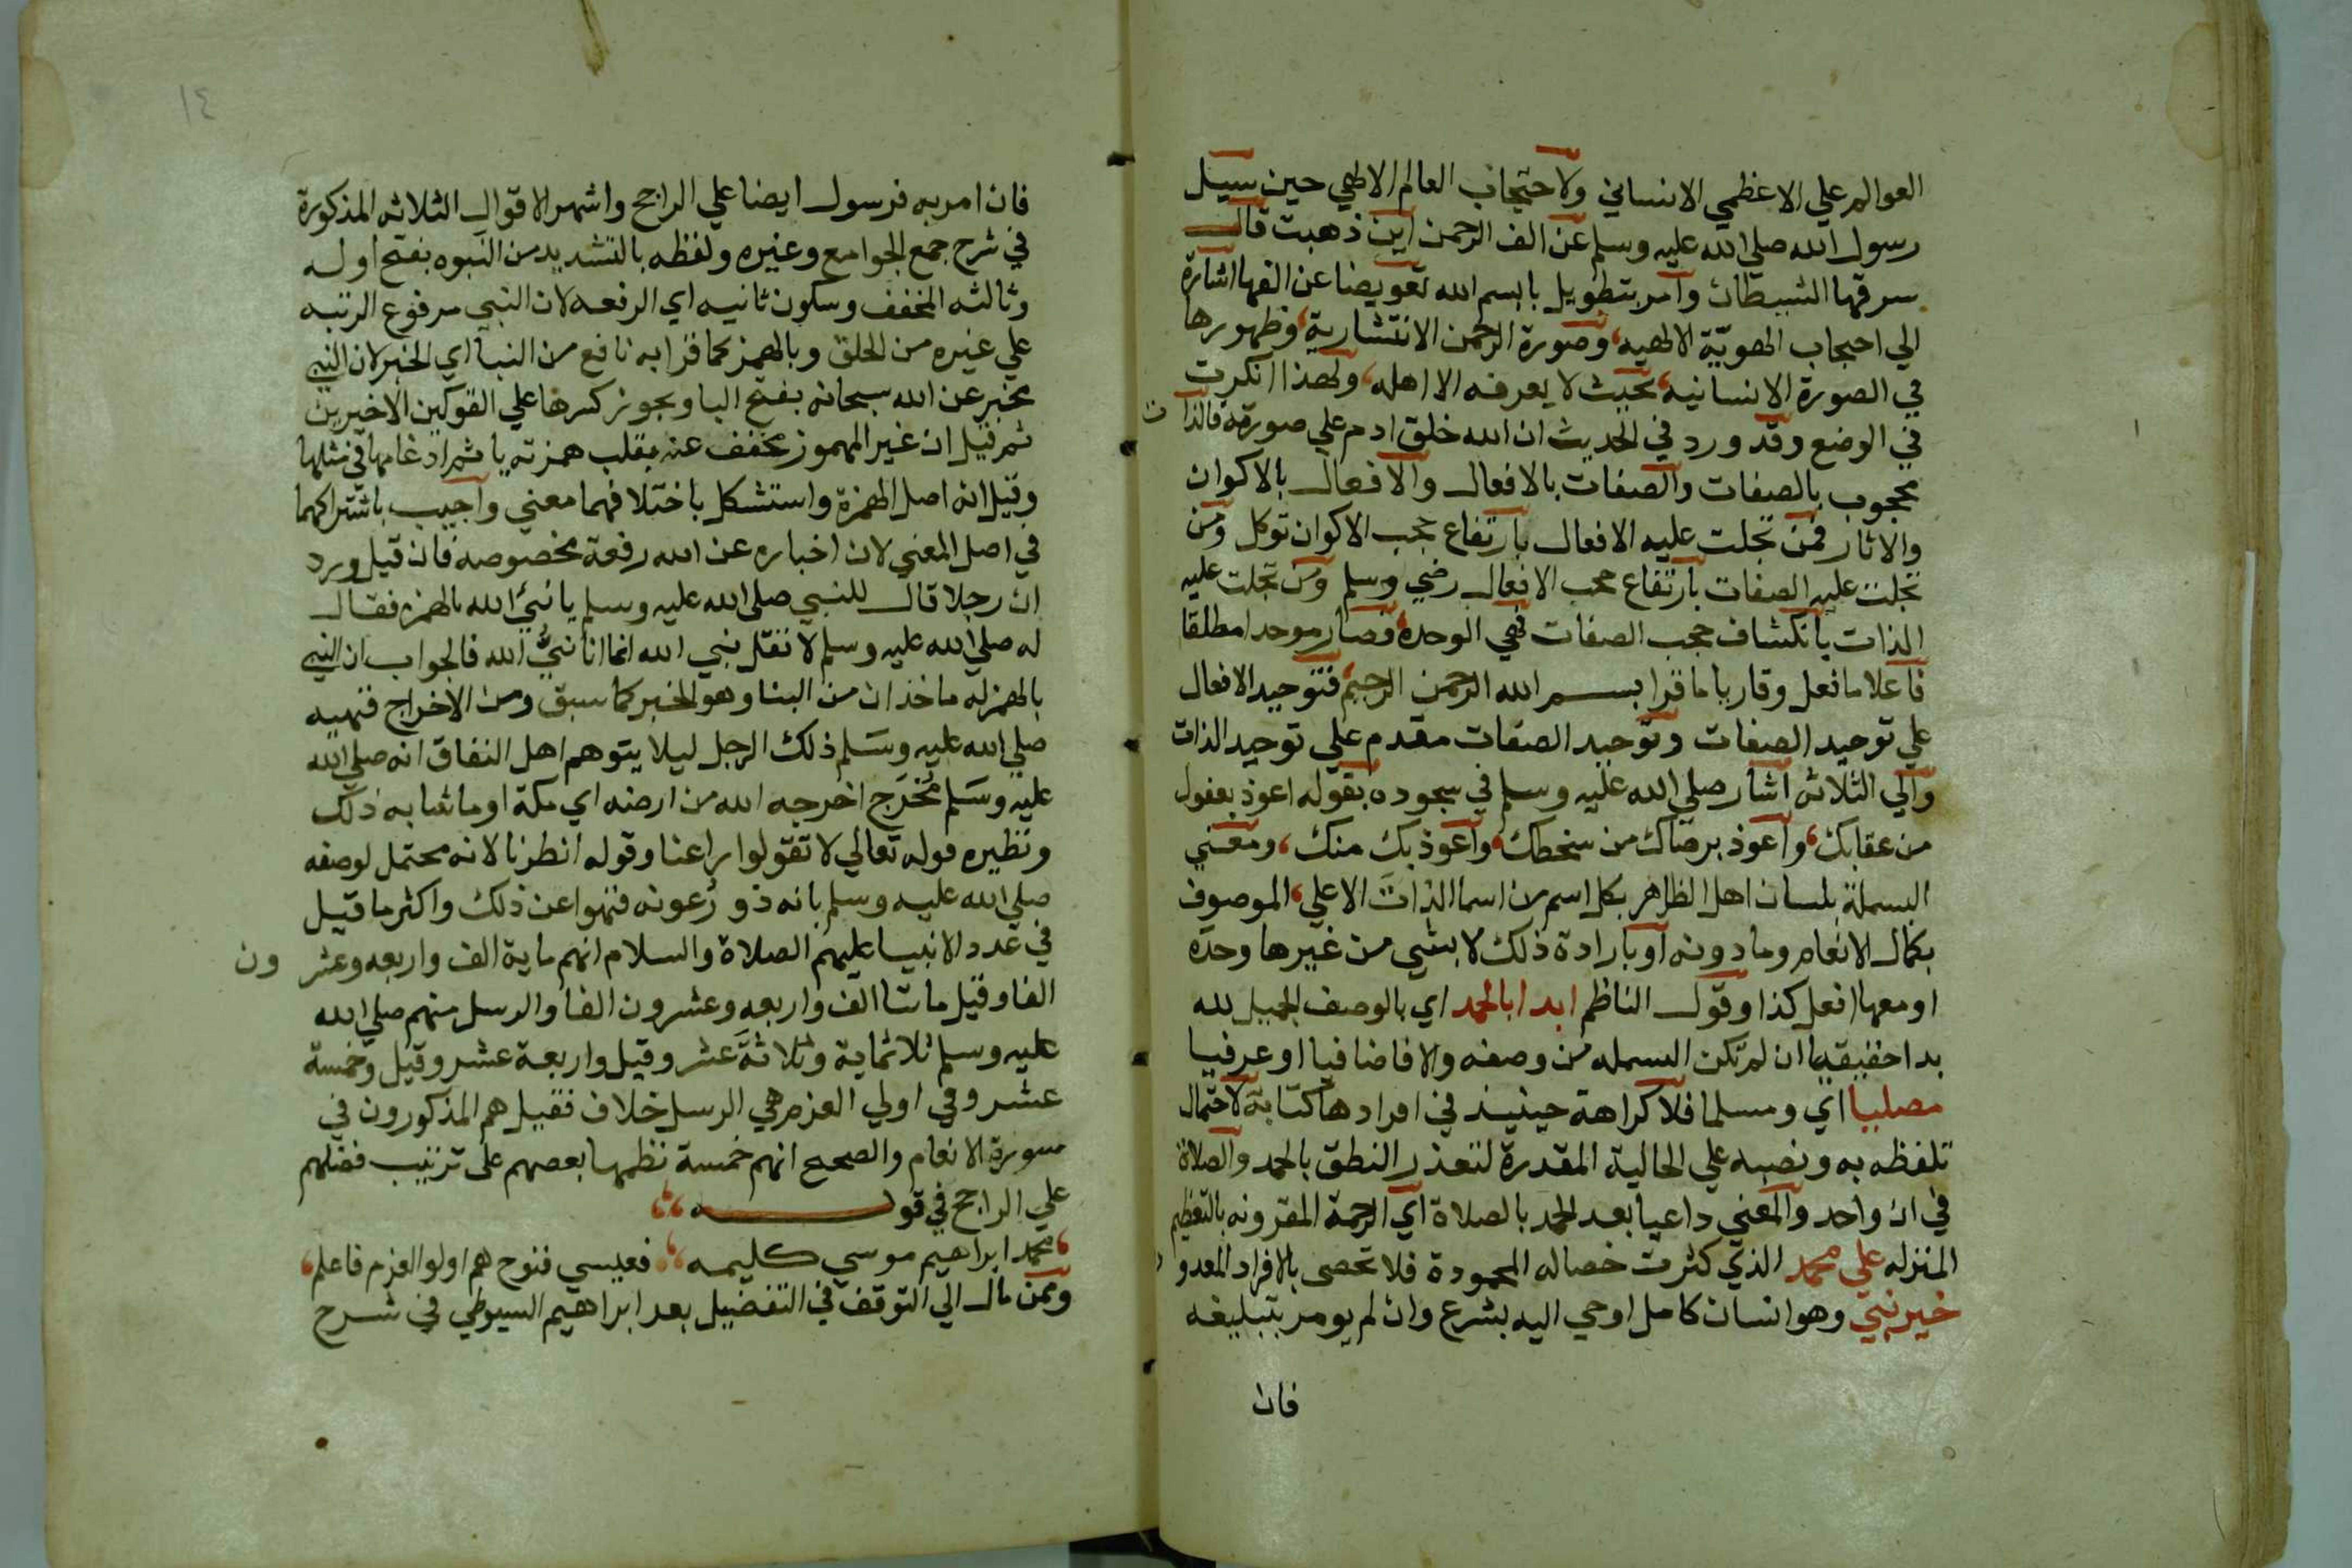 العوالم علي الاعظمي الانساني ولاحتجاب العالم الالهي حين سيل
رسول الله صلي الله عليه وسلم عن الف الرحمن اين ذهبت قال
سرقها الشيطان وآمر بتطويل با بسم الله تعويضا عن الفها اشارة
الي احتجاب الهويّة الالهيه وصورة الرحمن الانتشارية وظهورها
في الصورة الانسانيه بحيث لا يعرفه الا اهله ولهذا انكرت
في الوضع وقد ورد في الحديث ان الله خلق ادم علي صورته فالذات
محجوب بالصفات والصفات بالافعال والافعال بالاكوان
والاثار فمن تجلت عليه الافعال بارتفاع حجب الاكوان توكل ومن
تجلت عليه الصفات بارتفاع حجب الافعال رضي وسلم ومن تجلت عليه
الذات بانكشاف حجب الصفات فهي الوحدة فصار موحدا مطلقا
فاعلا ما فعل وقاريا ما قرا بسم الله الرحمن الرحيم فتوحيد الافعال
علي توحيد الصفات وتوحيد الصفات مقدم علي توحيد الذات
والي الثلاثه اشار صلي الله عليه وسلم في سجوده بقوله اعوذ بعفوك
من عقابك واعوذ برضاك من سخطك واعوذ بك منك ومعني
البسملة بلسان اهل الظاهر بكل اسم من اسما الذات الاعلي الموصوف
بكمال الانعام وما دونه او بارادة ذلك لا بشي من غيرها وحده
او معها افعل كذا وقول الناظم ابدا بالحمد اي بالوصف الجميل لله
بدا حقيقيا ان لم تكن البسمله من وصفه والا فاضافيا او عرفيا
مصليا اي ومسلما فلا كراهة حينيذ في افرادها كتابة لاحتمال
تلفظه به ونصبه علي الحالية المقدرة لتعذر النطق بالحمد والصلاة
في ان واحد والمعني داعيا بعد الحمد بالصلاة اي الرحمة المقرونه بالتعظيم
المنزله علي محمد الذي كثرت خصاله المحمودة فلا تحصى بالافراد المعدو
خير نبي وهو انسان كامل اوحي اليه بشرع وان لم يومر بتبليغه
فان
١٤
فان امر به فرسول ايضا علي الراجح واشهر الاقوال الثلاثه المذكورة
في شرح جمع الجوامع وغيره ولفظه بالتشديد من النبوه بفتح اوله
وثالثه المخفف وسكون ثانيه اي الرفعه لان النبي مرفوع الرتبه
علي غيره من الخلق وبالهمز كما قرا به نافع من النبا اي الخبر لان النبي
مخبر عن الله سبحانه بفتح البا ويجوز كسرها علي القولين الاخيرين
ثم قيل ان غير المهموز مخفف عنه بقلب همزته يا ثم ادغامها في مثلها
وقيل انه اصل الهمزة واستشكل باختلافهما معني واجيب باشتراكهما
في اصل المعني لان اخباره عن الله رفعة مخصوصة فان قيل ورد
ان رجلا قال للنبي صلي الله عليه وسلم يا نبيء الله بالهمزه فقال
له صلي الله عليه وسلم لا تقل نبيء الله انما انا نبيُّ الله فالجواب ان النبي
بالهمز له ماخذان من النبا وهو الخبر كما سبق ومن الاخراج فنهيه
صلي الله عليه وسلم ذلك الرجل ليلا يتوهم اهل النفاق انه صلي الله
عليه وسلم مُخْرَج اخرجه الله من ارضه اي مكة او ما شابه ذلك
ونظيره قوله تعالي لا تقولوا راعنا وقوله انظرنا لانه محتمل لوصفه
صلي الله عليه وسلم بانه ذو رُعونه فنهوا عن ذلك واكثر ما قيل
في عدد الانبيا عليهم الصلاة والسلام انهم ماية الف واربعه وعشرون
الفا وقيل مايتا الف واربعه وعشرون الفا والرسل منهم صلي الله
عليه وسلم ثلاثماية وثلاثة عشر وقيل واربعة عشر وقيل وخمسة
عشر وفي اولي العزم هي الرسل خلاف فقيل هم المذكورون في
سورة الانعام والصحيح انهم خمسة نظمها بعضهم على ترتيب فضلهم
علي الراجح في قوله
محمد ابراهيم موسي كليمه فعيسي فنوح هم اولو العزم فاعلم
وممن مال الي التوقف في التفضيل بعد ابراهيم السيوطي في شرح